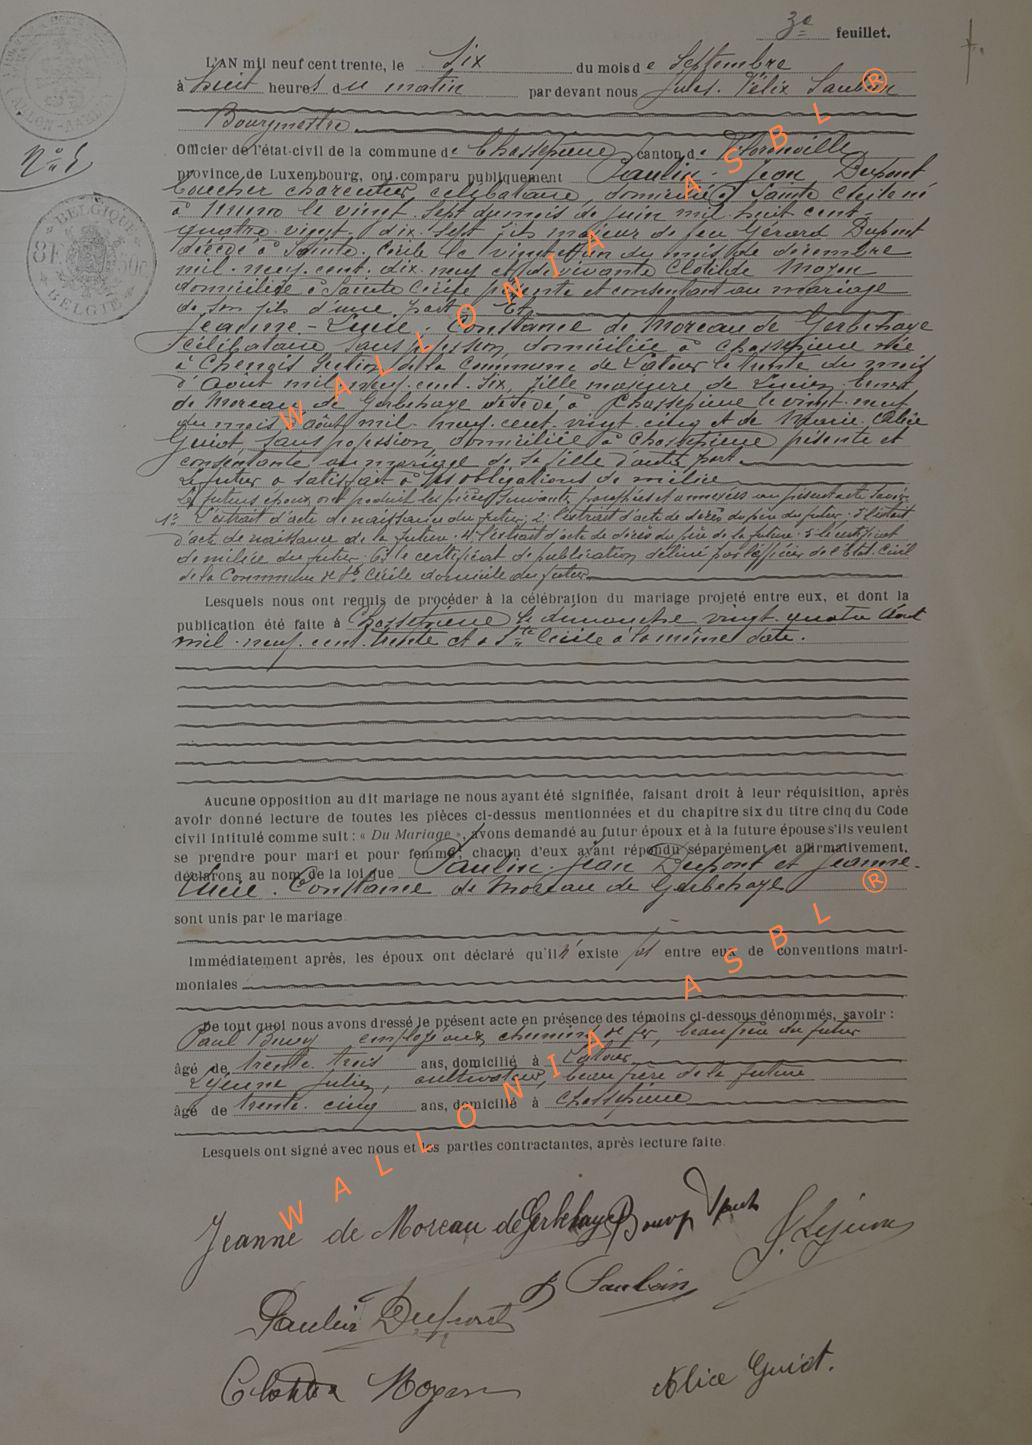 3e feuillet.
L'AN mil neuf cent trente, le Six du mois de Septembre
à huit heures du matin par devant nous Jules Félix Saubin
Bourgmestre
N° 5
Officier de l'état-civil de la commune de Chassepierre canton de Florenville
province de Luxembourg, ont comparu publiquement Paulin Jean Dupont
boucher charcutier célibataire, domicilié à Sainte Cécile né
à Muno le vingt sept du mois de juin mil huit cent
quatre vingt dix sept fils majeur de feu Gérard Dupont
décédé à Sainte Cécile le vingt un du mois de décembre
mil neuf cent dix neuf et de vivante Clotilde Moyen
domiciliée à Sainte Cécile présente et consentant au mariage
de son fils d'une part Et
Jeanne-Lucie-Constance de Moreau de Gerbehaye
célibataire sans profession, domiciliée à Chassepierre née
à Chenois Section de la Commune de Latour le trente du mois
d'Août mil neuf cent six, fille majeure de Lucien
de Moreau de Gerbehaye décédé à Chassepierre le vingt neuf
du mois d'août mil neuf cent vingt cinq et de Marie Alice
Guiot, sans profession, domiciliée à Chassepierre présente et
consentante au mariage de sa fille d'autre part
Le futur a satisfait à ses obligations de milice
Les futurs époux ont produit les pièces suivantes, paraphées et annexées au présent acte savoir
1° L'extrait d'acte de naissance du futur; 2. l'extrait d'acte de décès du père du futur; 3 l'extrait
d'acte de naissance de la future. 4 l'extrait d'acte de décès du père de la future. 5 le certificat
de milice du futur; 6 le certificat de publication délivré par l'officier de l'Etat Civil
de la Commune de Ste Cécile domicile du futur
Lesquels nous ont requis de procéder à la célébration du mariage projeté entre eux, et dont la
publication été faite à Chassepierre le dimanche vingt quatre Août
mil neuf cent trente et à Ste Cécile à la même date.
Aucune opposition au dit mariage ne nous ayant été signifiée, faisant droit à leur réquisition, après
avoir donné lecture de toutes les pièces ci-dessus mentionnées et du chapitre six du titre cinq du Code
civil intitulé comme suit : « Du Mariage », avons demandé au futur époux et à la future épouse s'ils veulent
se prendre pour mari et pour femme; chacun d'eux ayant répondu séparément et affirmativement,
déclarons au nom de la loi que Paulin Jean Dupont et Jeanne-
Lucie Constance de Moreau de Gerbehaye
sont unis par le mariage.
Immédiatement après, les époux ont déclaré qu'il n'existe pas entre eux de conventions matri-
moniales
De tout quoi nous avons dressé le présent acte en présence des témoins ci-dessous dénommés, savoir :
Paul employé aux chemins de fer, beau frère du futur
âgé de trente trois ans, domicilié à Latour
Lejeune Julien, cultivateur, beau frère de la future
âgé de trente cinq ans, domicilié à Chassepierre
Lesquels ont signé avec nous et les parties contractantes, après lecture faite.
Jeanne de Moreau de Gerbehaye
J. Lejeune
Saubin
Paulin Dupont
Clotilde Moyen
Alice Guiot.
BELGIQUE
BELGIE
WALLONIA ASBL ®
WALLONIA ASBL ®